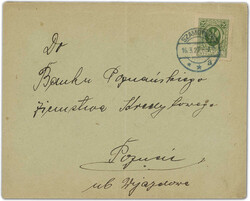 SZAMO
Do
Banku Poznańskiego
Ziemstwa Kredytowego
Poznań
ul. Wjazdowa